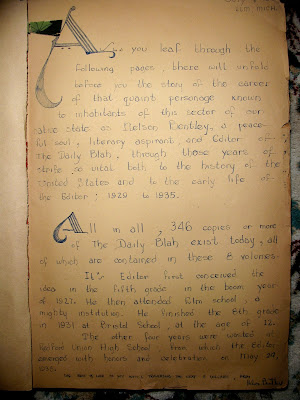 ELM, MICH.
As you leaf through the
following pages, there will unfold
before you the story of the career
of that quaint personage known
to inhabitants of this sector of our
state as Nelson Bentley, a peace-
ful soul, literary aspirant, and Editor of
The Daily Blah, through those years of
strife so vital both to the history of the
United States and to the early life of
the Editor: 1929 to 1935.
All in all, 346 copies or more
of The Daily Blah exist today, all
of which are contained in these 8 volumes.
Its Editor first conceived the
idea in the fifth grade in the boom year
of 1927. He then attended Elm school, a
mighty institution. He finished the 8th grade
in 1931 at Bristol School, at the age of 12.
The other four years were wasted at
Redford Union High School, from which the Editor
emerged with honors and celebration on May 29,
1935.